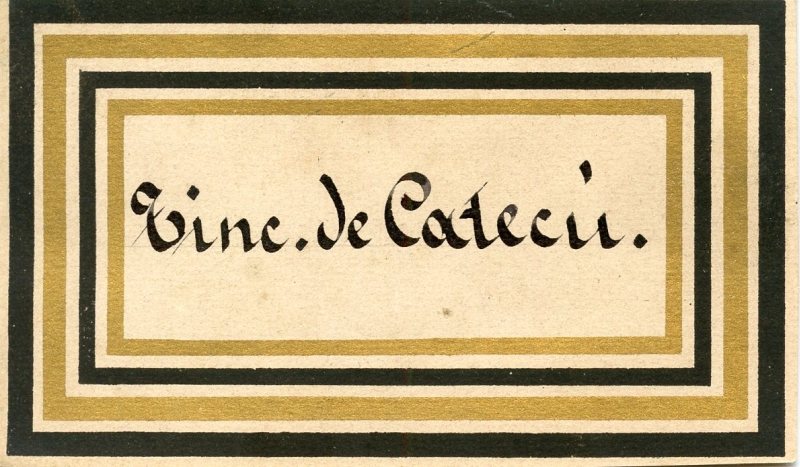 Tinc. de Catecú.